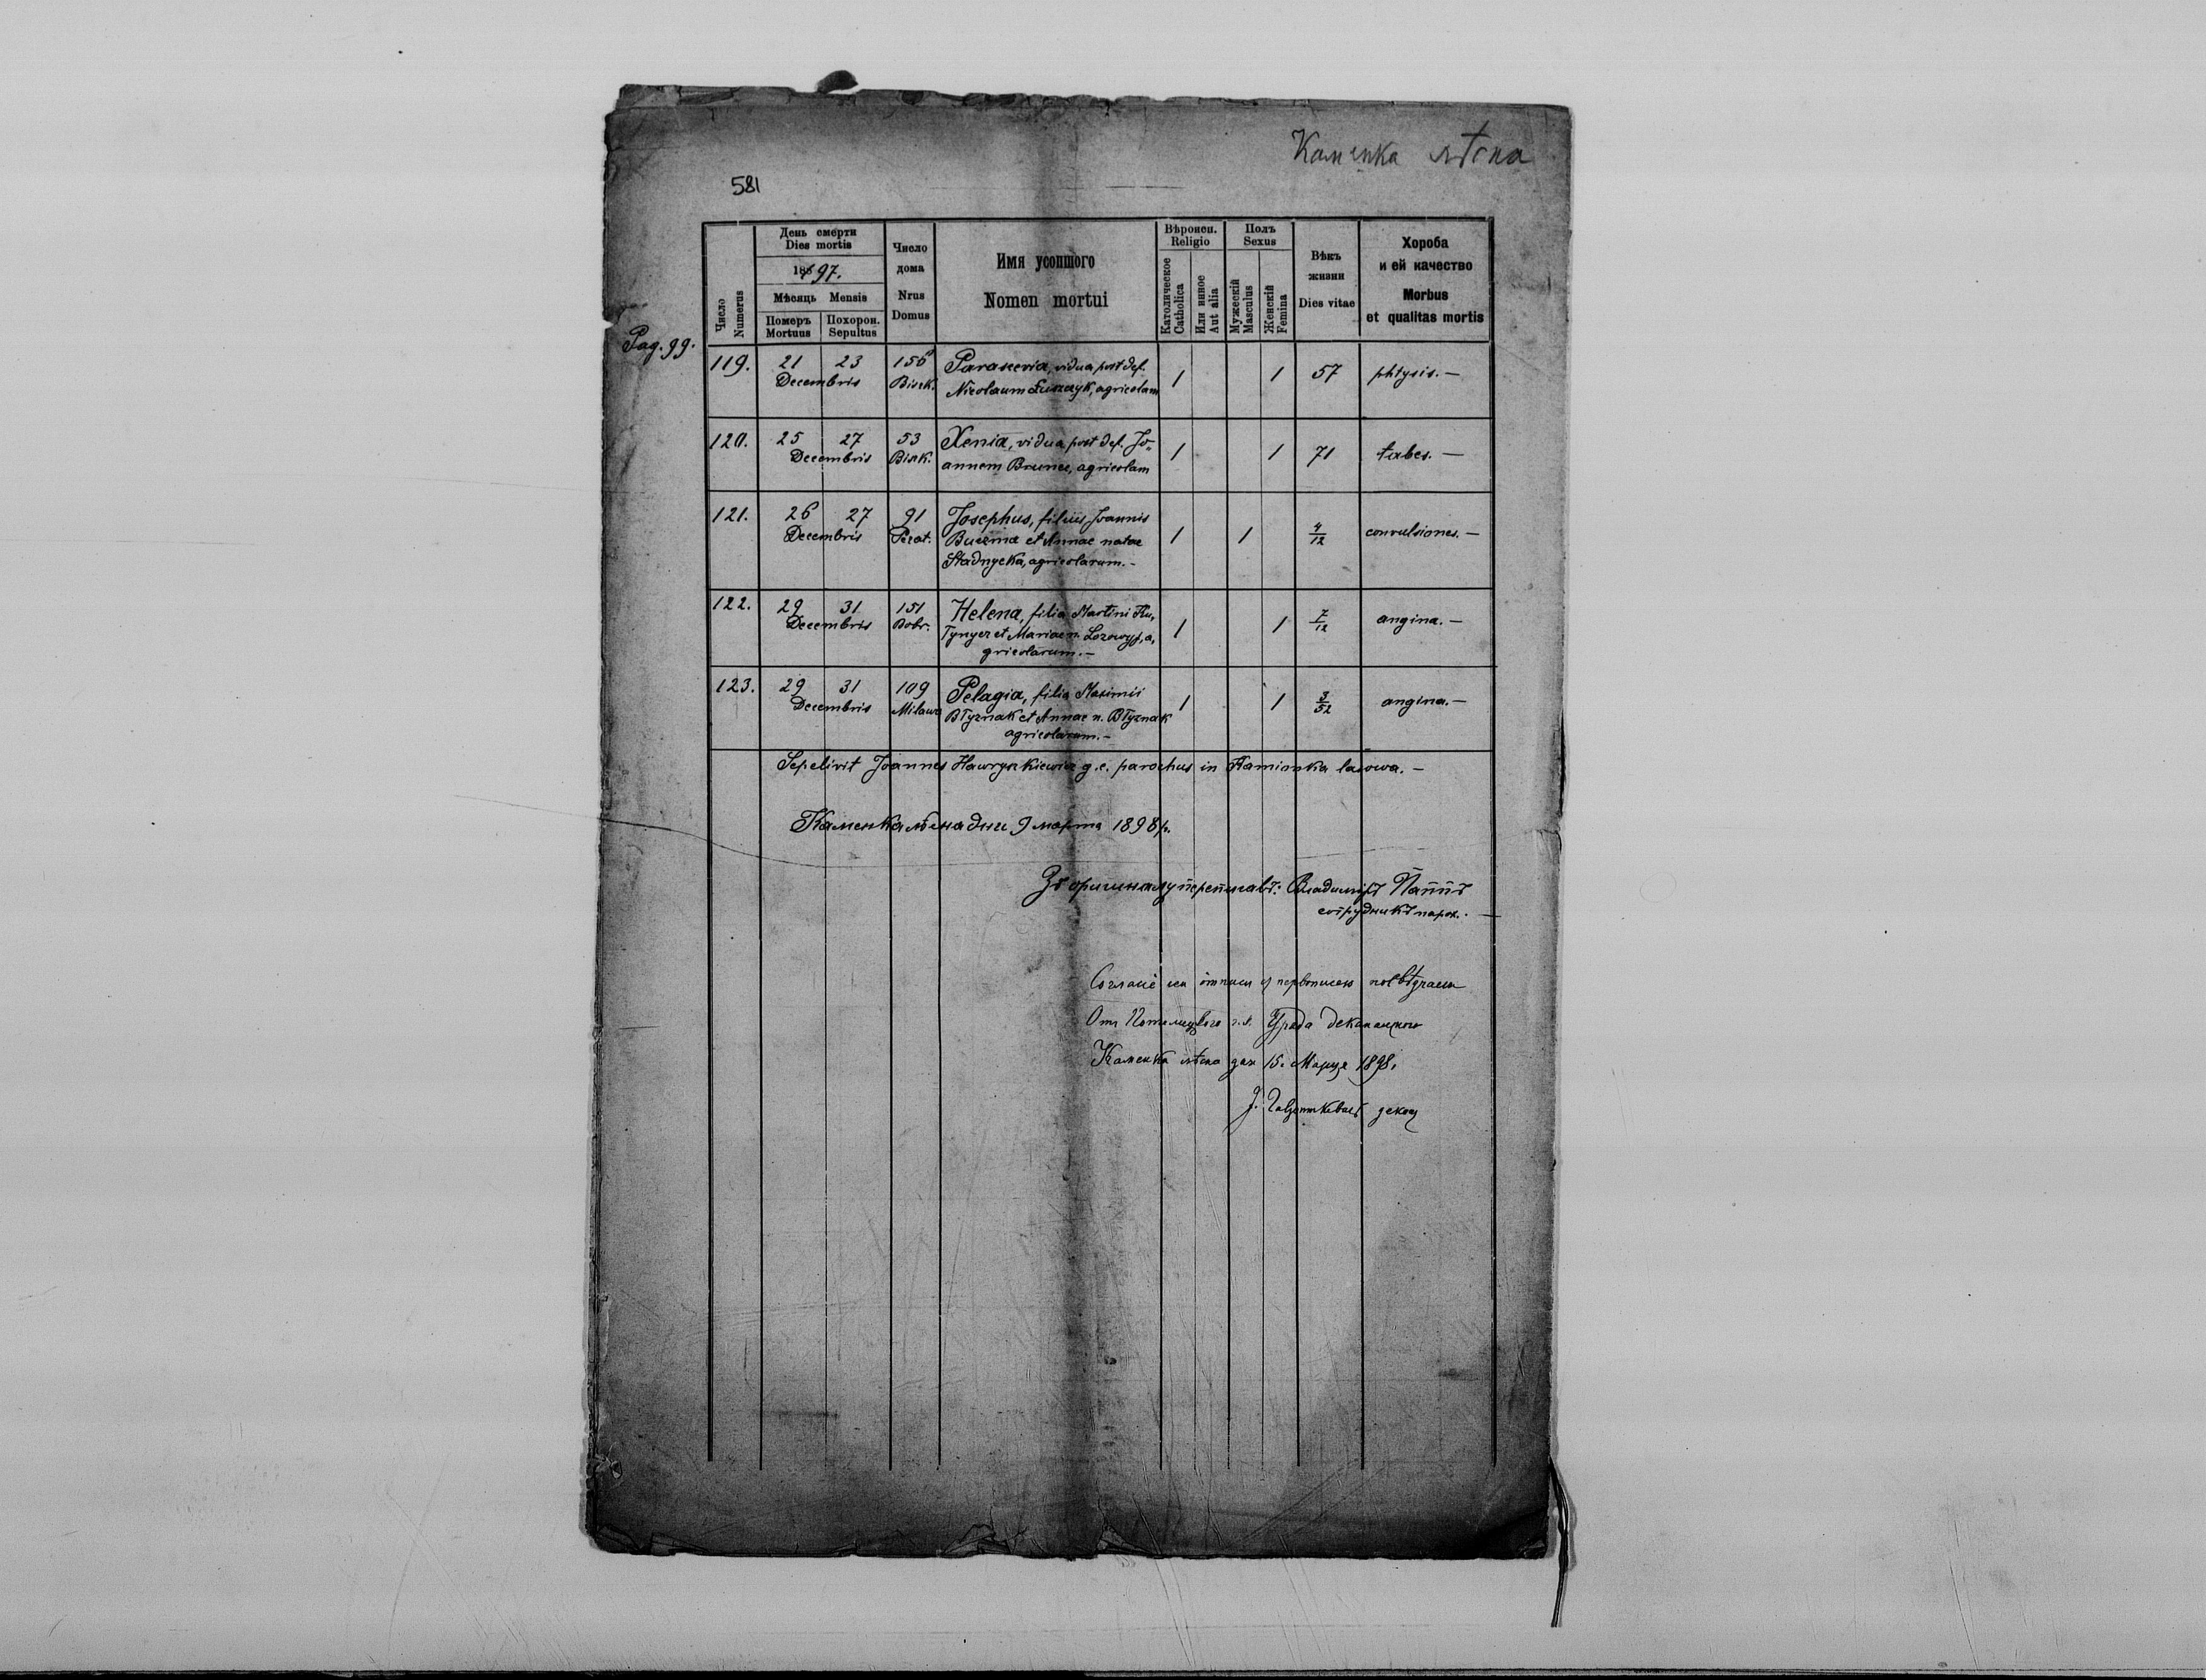 Каменка лѣсна
581
День смерти
Dies mortis
1897.
Мѣсяць Mensis
Померъ Похорон.
Mortuus Sepultus
Число
Numerus
Число
дома
Nrus
Domus
Имя усопшого
Nomen mortui
Вѣроисп.
Religio
Католическое
Catholica
Или инное
Aut alia
Полъ
Sexus
Мужескій
Masculus
Женскій
Femina
Вѣкъ
жизни
Dies vitae
Хороба
и ей качество
Morbus
et qualitas mortis
Pag. 99.
119. 21 23 Decembris 156 Bisek.
Parascevia, vidua post def.
Nicolaum agricolam
1 1 57 phtysis. —
120. 25 27 Decembris 53 Bisek.
Xenia, vidua post def. Jo„
annem Brunec, agricolam
1 1 71 tabes. —
121. 26 27 Decembris 91 Pecot.
Josephus, filius Joannis
Buczma et Annae natae
Stadnycka, agricolarum. -
1 1 4/12 convulsiones. —
122. 29 31 Decembris 151 Bobr.
Helena, filia Martini Ku„
tynycz et Mariae n. Lozowyj, a„
gricolarum. —
1 1 7/12 angina. —
123. 29 31 Decembris 109 Milawa
Pelagia, filia Maximii
Błyznak et Annae n. Błyznak
agricolarum. —
1 1 3/52 angina. —
Sepelivit Joannes Hawryszkiewicz g. c. parochus in Kamionka lasowa. —
Каменка лѣсна дни 9 марта 1898 р.
Зъ оригиналу переписавъ: Владимиръ Паппъ
сотрудникъ парох. —
Согласіе сеи отписи з первописею
Отъ г. к. Уряда деканального
Каменка лѣсна дня 15. Марца 1898.